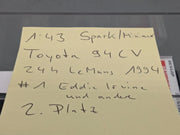 1:43 Spark/Minimax
Toyota 94 CV
24h LeMans 1994
#1 Eddie Irvine
und andere
2. Platz